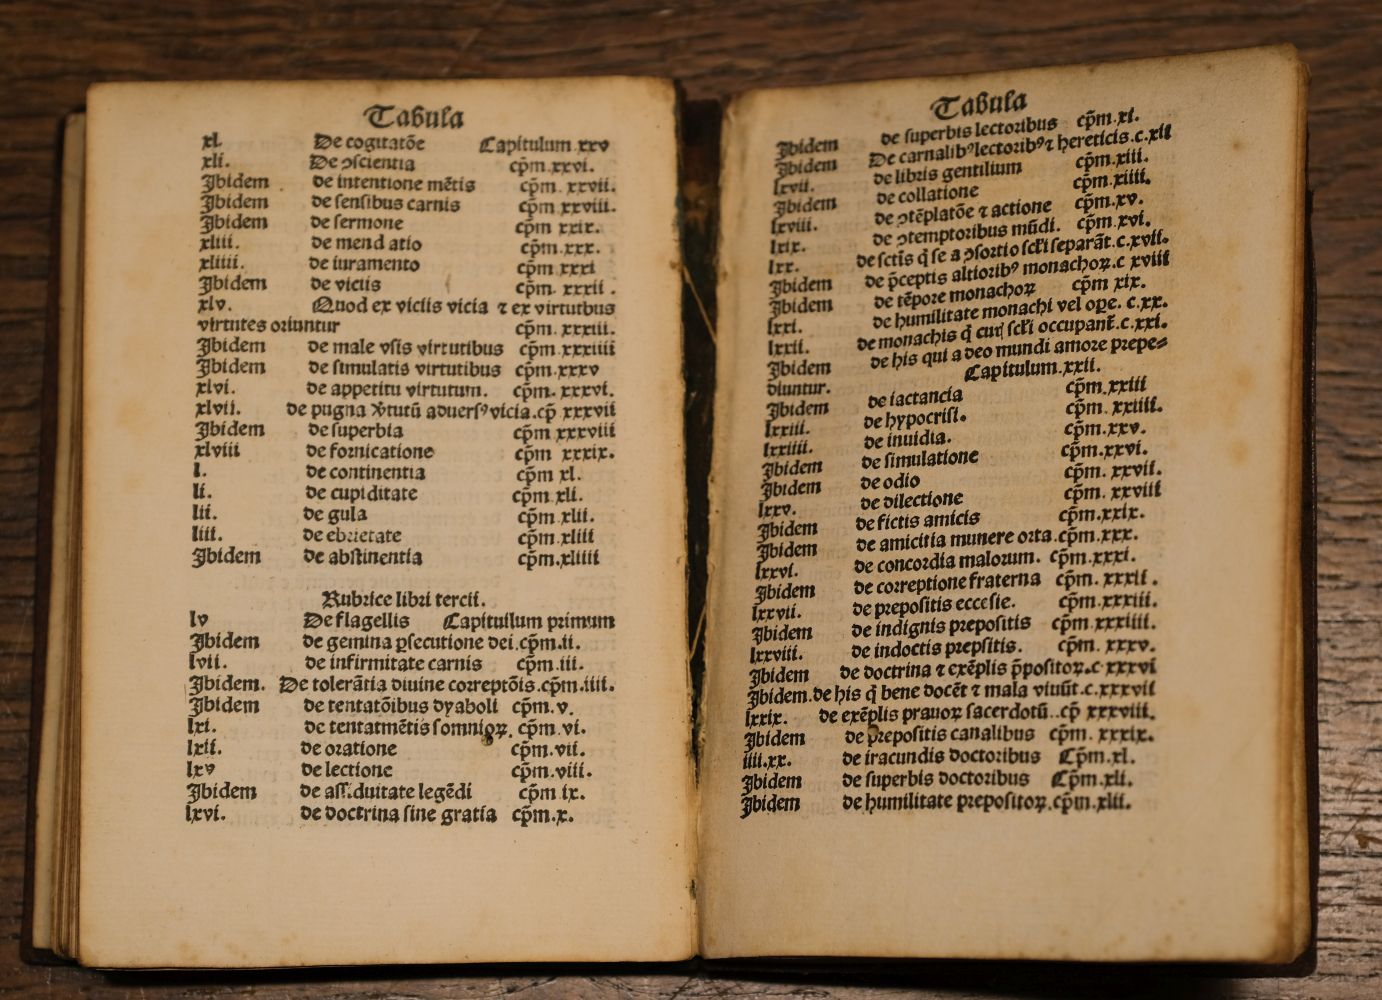 Tabula
xl. De cogitatōe Capitulum xxv
xli. De ↄscientia cp̄m xxvi.
Ibidem de intentione mētis cp̄m. xxvii.
Ibidem de sensibus carnis cp̄m xxviii.
Ibidem de sermone cp̄m xxix.
xliii. de mend atio cp̄m xxx.
xliiii. de iuramento cp̄m xxxi
Ibidem de viciis cp̄m. xxxii.
xlv. Quod ex viciis vicia ⁊ ex virtutbus
virtutes oriuntur cp̄m. xxxiii.
Ibidem de male vsis virtutibus cp̄m xxxiiii
Ibidem de simulatis virtutibus cp̄m. xxxv
xlvi. de appetitu virtutum. cp̄m. xxxvi.
xlvii. de pugna v̄tutū aduersꝰ vicia.cp̄ xxxvii
Ibidem de superbia cp̄m xxxviii
xlviii de fornicatione cp̄m xxxix.
l. de continentia cp̄m xl.
li. de cupiditate cp̄m xli.
lii. de gula cp̄m xlii.
liii. de ebrietate cp̄m xliii
Ibidem de abstinentia cp̄m.xliiii
Rubrice libri tercii.
lv De flagellis Capituilum primum
Ibidem de gemina ꝑsecutione dei.cp̄m.ii.
lvii. de infirmitate carnis cp̄m.iii.
Ibidem. De tolerātia diuine correptōis.cp̄m.iiii.
Ibidem de tentatōibus dyaboli cp̄m.v.
lxi. de tentatmētis somnioꝝ. cp̄m.vi.
lxii. de oratione cp̄m.vii.
lxv de lectione cp̄m.viii.
Ibidem de assiduitate legēdi cp̄m ix.
lxvi. de doctrina sine gratia cp̄m.x.
Tabula
Ibidem de superbis lectoribus cp̄m.xi.
Ibidem De carnalibꝰ lectoribꝰ ⁊ hereticis.c.xii
lxvii. de libris gentilium cp̄m.xiii.
Ibidem de collatione cp̄m.xiiii.
lxviii. de ↄtēplatōe ⁊ actione cp̄m.xv.
lxix. de ↄtemptoribus mūdi. cp̄m.xvi.
lxx. de sctīs q̄ se a ↄsortio scl̄i separāt.c.xvii.
Ibidem de p̄ceptis altioribꝰ monachoꝝ.c xviii
Ibidem de tēpore monachoꝝ cp̄m xix.
lxxi. de humilitate monachi vel oꝑe. c.xx.
lxxii. de monachis q̄ scl̄i occupant̄.c.xxi.
Ibidem de his qui a deo mundi amore prepe⸗
diuntur. Capitulum.xxii.
Ibidem de iactancia cp̄m.xxiii
lxxiii. de hypocrisi. cp̄m. xxiiii.
lxxiiii. de inuidia. cp̄m.xxv.
Ibidem de simulatione cp̄m.xxvi.
Ibidem de odio cp̄m. xxvii.
lxxv. de dilectione cp̄m. xxviii
Ibidem de fictis amicis cp̄m.xxix.
Ibidem de amicitia munere orta.cp̄m.xxx.
lxxvi. de concordia malorum. cp̄m.xxxi.
Ibidem de correptione fraterna cp̄m. xxxii.
lxxvii. de prepositis eccesie. cp̄m.xxxiii.
Ibidem de indignis prepositis cp̄m.xxxiiii.
lxxviii. de indoctis prepsitis. cp̄m. xxxv.
Ibidem de doctrina ⁊ exēplis p̄positoꝝ.c xxxvi
Ibidem.de his q̄ bene docēt ⁊ mala viuūt.c.xxxvii
lxxix. de exēplis prauoꝝ sacerdotū..cp̄ xxxviii.
Ibidem de prepositis canalibus cp̄m. xxxix.
iiii.xx. de iracundis doctoribus Cp̄m.xl.
Ibidem de superbis doctoribus Cp̄m.xli.
Ibidem de humilitate prepositoꝝ.cp̄m.xlii.